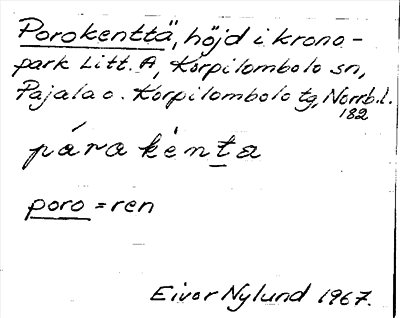 Porokenttä, höjd i krono-
park Litt. A, Korpilombolo sn,
Pajala o. Korpilombolo tg, Norrb.l.
182
párakènta
poro = ren
Eivor Nylund 1967.